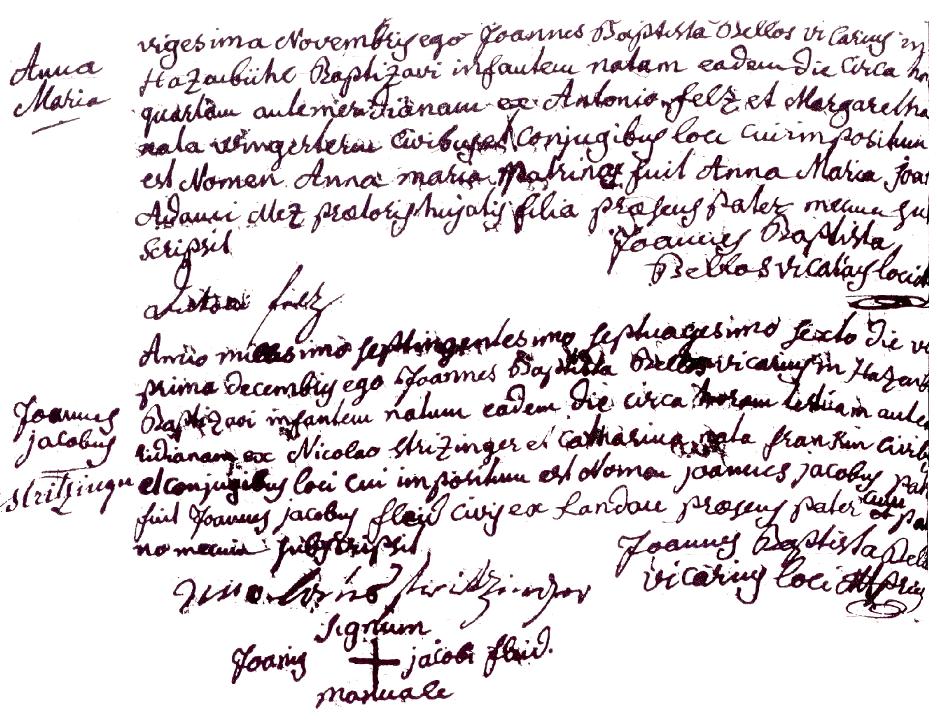 vigesima Novembris ego Joannes Baptista Bellos vicarius in
Anna
Maria
Hazabühl Baptizavi infantem natam eadem die circa
quartam antemeridianam ex Antonio felz et Margaretha
nata wingerterin civibus et Conjugibus loci cui impositum
est Nomen Anna maria Matrina fuit Anna Maria
Adami Mez prætoris hujatis filia præsens pater mecum
scripsit
Joannes Baptista
Bellos vicarius loci
Anton felz
Anno millesimo septingentesimo septuagesimo sexto die
prima decembris ego Joannes Baptista Bellos vicarius in
Joannes
jacobus
Baptizavi infantem natum eadem die circa horam tertiam
ridianam ex Nicolao Stritzinger et Catharina nata frankin
Stritzinger
et conjugibus loci cui impositum est Nomen joannes jacobus
fuit Joannes jacobus fleid civis ex Landau præsens pater et
no mecum subscripsit
Joannes Baptista
vicarius loci
Stritzinger
signum
Joanis + jacobi fleid.
manuale